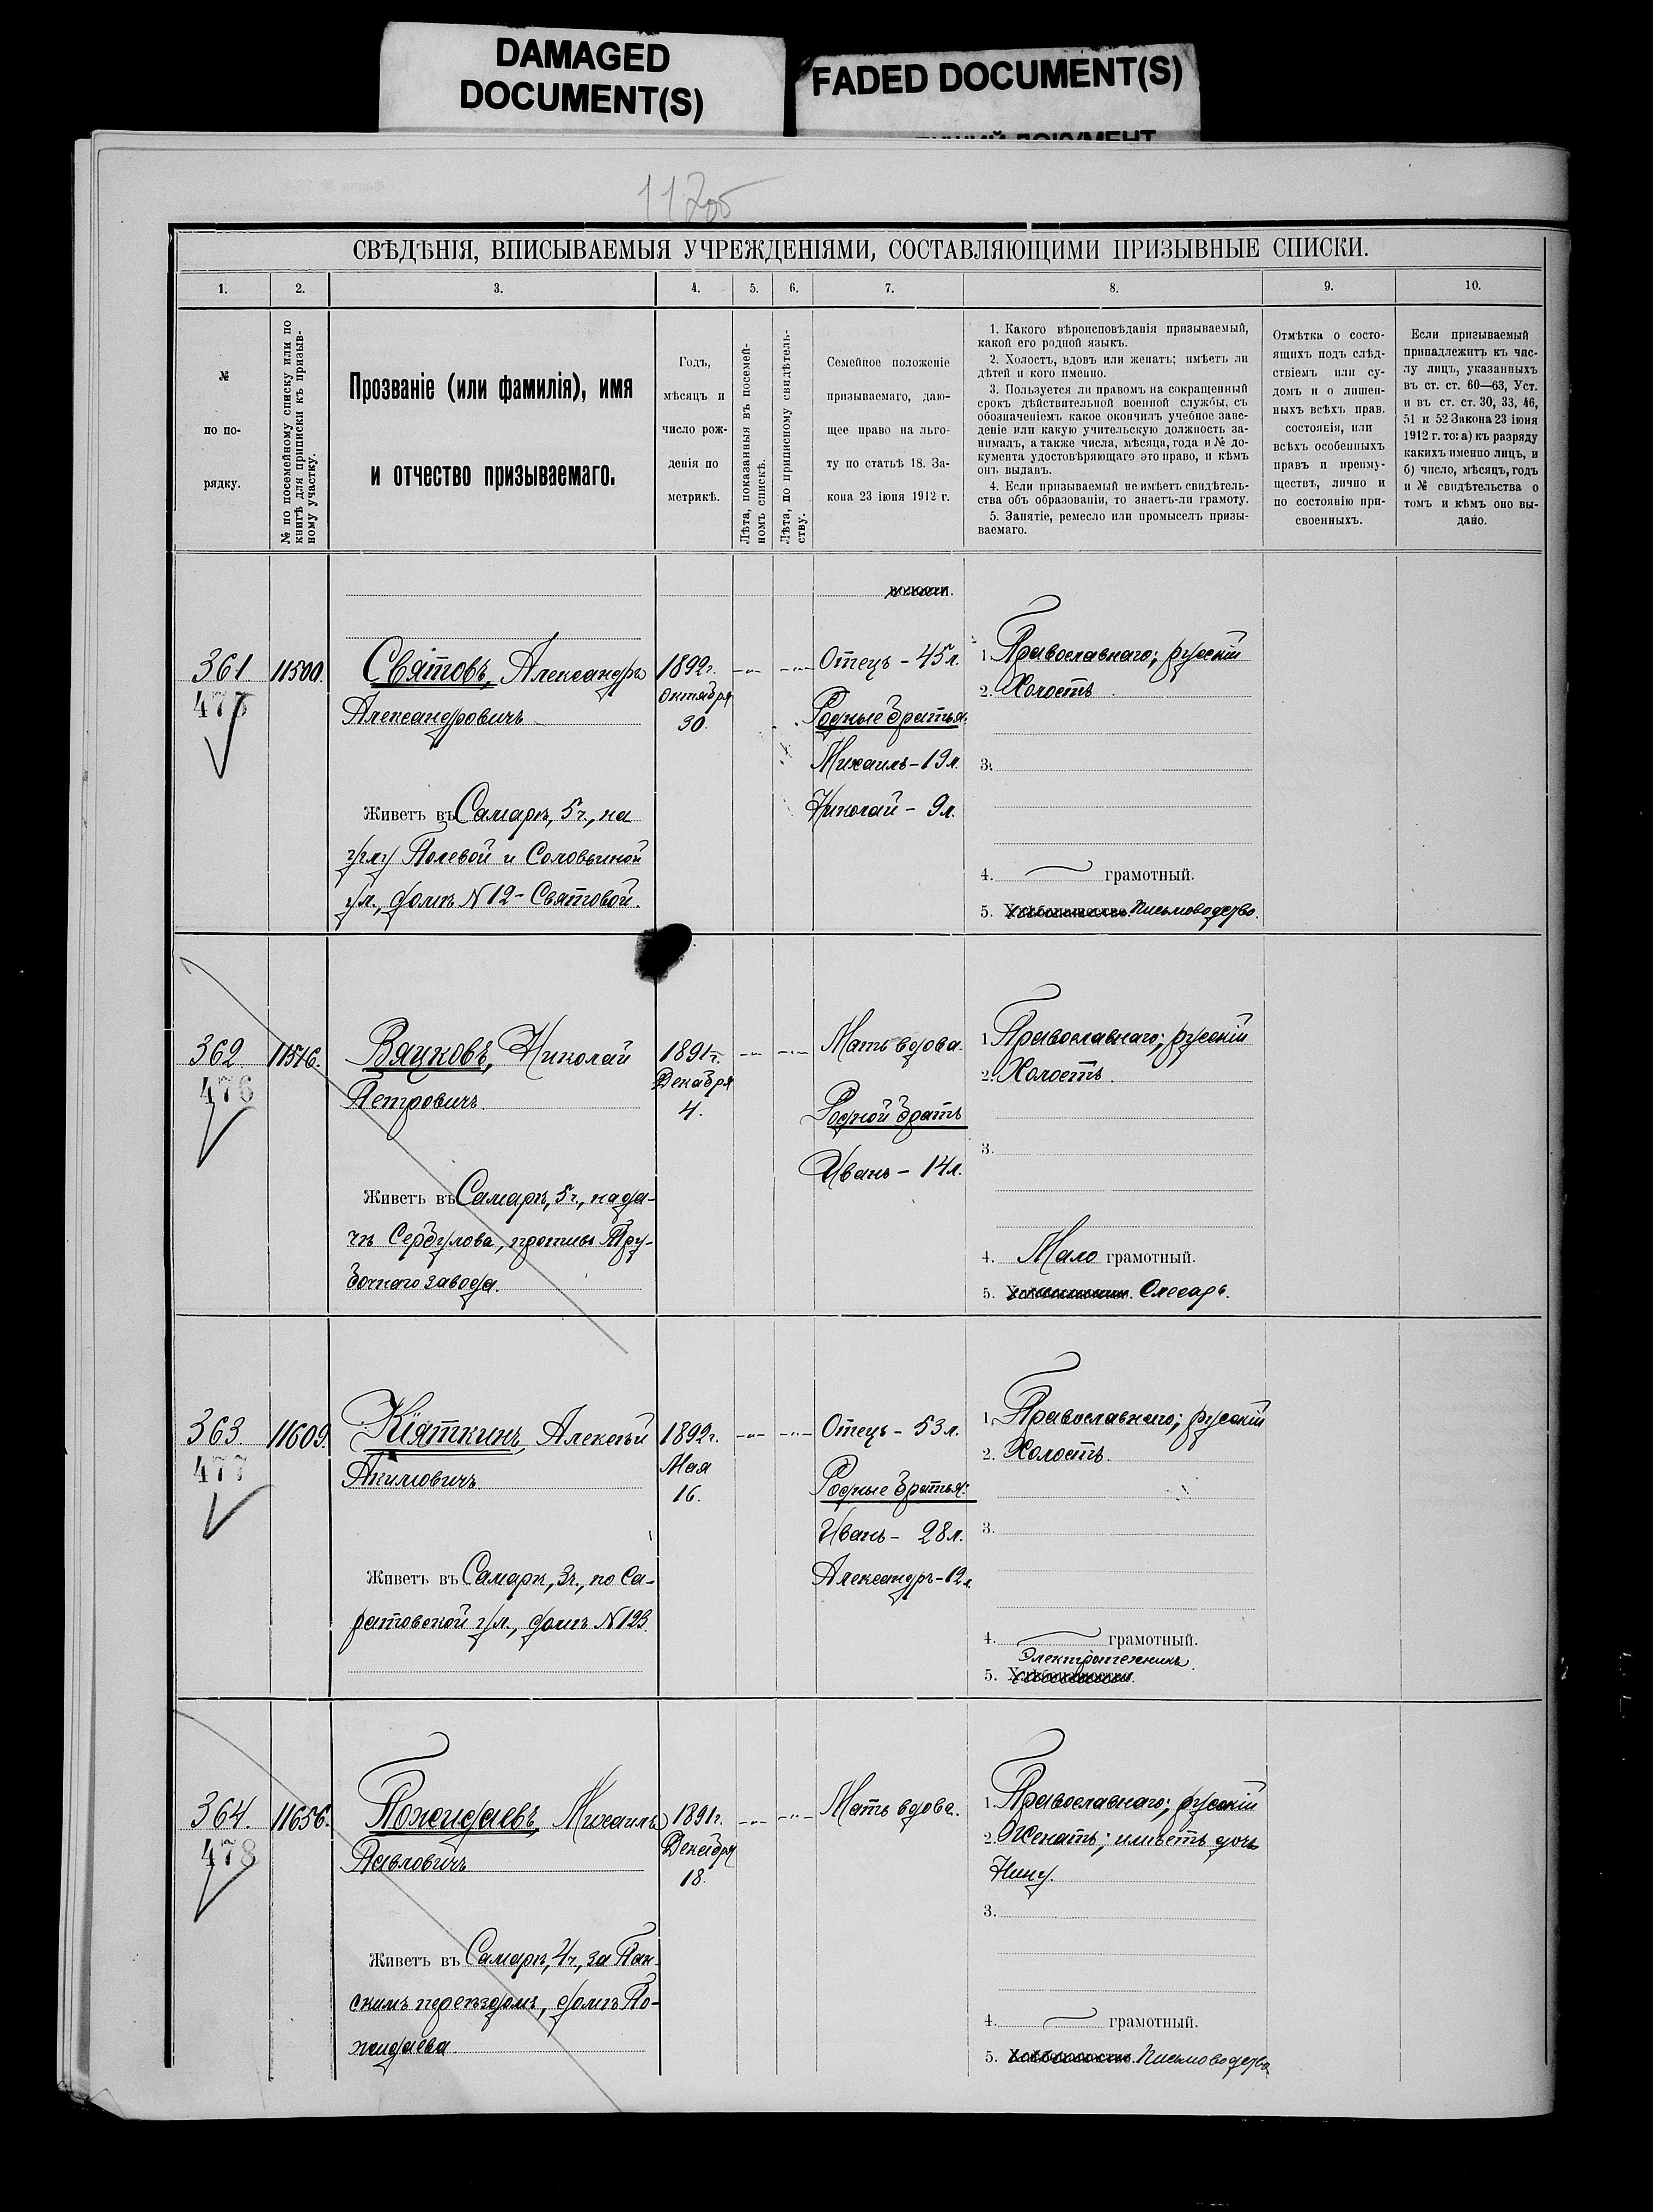 DAMAGED
DOCUMENT(S)
FADED DOCUMENT(S)
112об
СВѢДѢНІЯ, ВПИСЫВАЕМЫЯ УЧРЕЖДЕНІЯМИ, СОСТАВЛЯЮЩИМИ ПРИЗЫВНЫЕ СПИСКИ.
1.
2.
3.
4.
5.
6.
7.
8.
9.
10.
№
по по-
рядку.
№ по посемейному списку или по
книгѣ для приписки къ призыв-
ному участку.
Прозваніе (или фамилія), имя
и отчество призываемаго.
Годъ,
мѣсяцъ и
число рож-
денія по
метрикѣ.
Лѣта, показанныя въ посемей-
номъ спискѣ.
Лѣта, по приписному свидѣтель-
ству.
Семейное положеніе
призываемаго, даю-
щее право на льго-
ту по статьѣ 18. За-
кона 23 іюня 1912 г.
1. Какого вѣроисповѣданія призываемый,
какой его родной языкъ.
2. Холостъ, вдовъ или женатъ; имѣетъ ли
дѣтей и кого именно.
3. Пользуется ли правомъ на сокращенный
срокъ дѣйствительной военной службы, съ
обозначеніемъ какое окончилъ учебное заве-
деніе или какую учительскую должность за-
нималъ, а также числа, мѣсяца, года и № до-
кумента удостовѣряющаго это право, и кѣмъ
онъ выданъ.
4. Если призываемый не имѣетъ свидѣтель-
ства объ образованіи, то знаетъ-ли грамоту.
5. Занятіе, ремесло или промыселъ призы-
ваемаго.
Отмѣтка о состо-
ящихъ подъ слѣд-
ствіемъ или су-
домъ и о лишен-
ныхъ всѣхъ прав.
состоянія, или
всѣхъ особенныхъ
правъ и преиму-
ществъ, лично и
по состоянію при-
своенныхъ.
Если призываемый
принадлежитъ къ чис-
лу лицъ, указанныхъ
въ ст. ст. 60—63, Уст.
и въ ст. ст. 30, 33, 46,
51 и 52 Закона 23 іюня
1912 г. то: а) къ разряду
какихъ именно лицъ, и
б) число, мѣсяцъ, годъ
и № свидѣтельства о
томъ и кѣмъ оно вы-
дано.
волости.
361
475
11500.
Святовъ, Александръ
Александровичъ
Живетъ въ Самарѣ, 5 ч., на
углу Полевой и Соловьиной
ул., домъ N 12 - Святовой.
1892 г.
Октября
30.
Отецъ - 45 л.
Родные братья:
Михаилъ - 19 л.
Николай - 9 л.
1. Православнаго; русскій
2. Холостъ.
3.
4. грамотный.
5. Хлѣбопашество. Письмоводство.
362
476
11516.
Вяцковъ, Николай
Петровичъ.
Живетъ въ Самарѣ, 5 ч., на да-
чѣ Сербулова, противъ Тру-
бочнаго завода.
1891 г.
Декабря
4.
Мать вдова.
Родной братъ
Иванъ - 14 л.
1. Православнаго; русскій
2. Холостъ.
3.
4. Мало грамотный.
5. Слесарь.
363.
477
11609.
Кіяткинъ, Алексѣй
Акимовичъ.
Живетъ въ Самарѣ, 3 ч., по Са-
ратовской ул., домъ N 123.
1892 г.
Мая
16.
Отецъ - 53 л.
Родные братья:
Иванъ - 28 л.
Александръ - 12 л.
1. Православнаго; русскій
2. Холостъ.
3.
4. грамотный.
Электротехникъ.
5. Хлѣбопашество.
364.
478
11656.
Пожидаевъ, Михаилъ
Павловичъ
Живетъ въ Самарѣ, 4 ч., за Пан-
скимъ переѣздомъ, домъ По-
жидаева.
1891 г.
Декабря
18.
Мать вдова.
1. Православнаго; русскій
2. Женатъ; имѣетъ дочь
Нину.
3.
4. грамотный.
5. Хлѣбопашество. Письмоводство